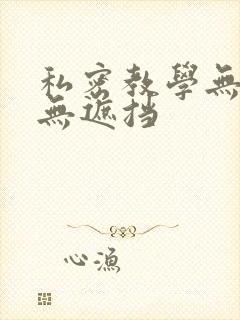 私密教學無
無遮挡
心漁